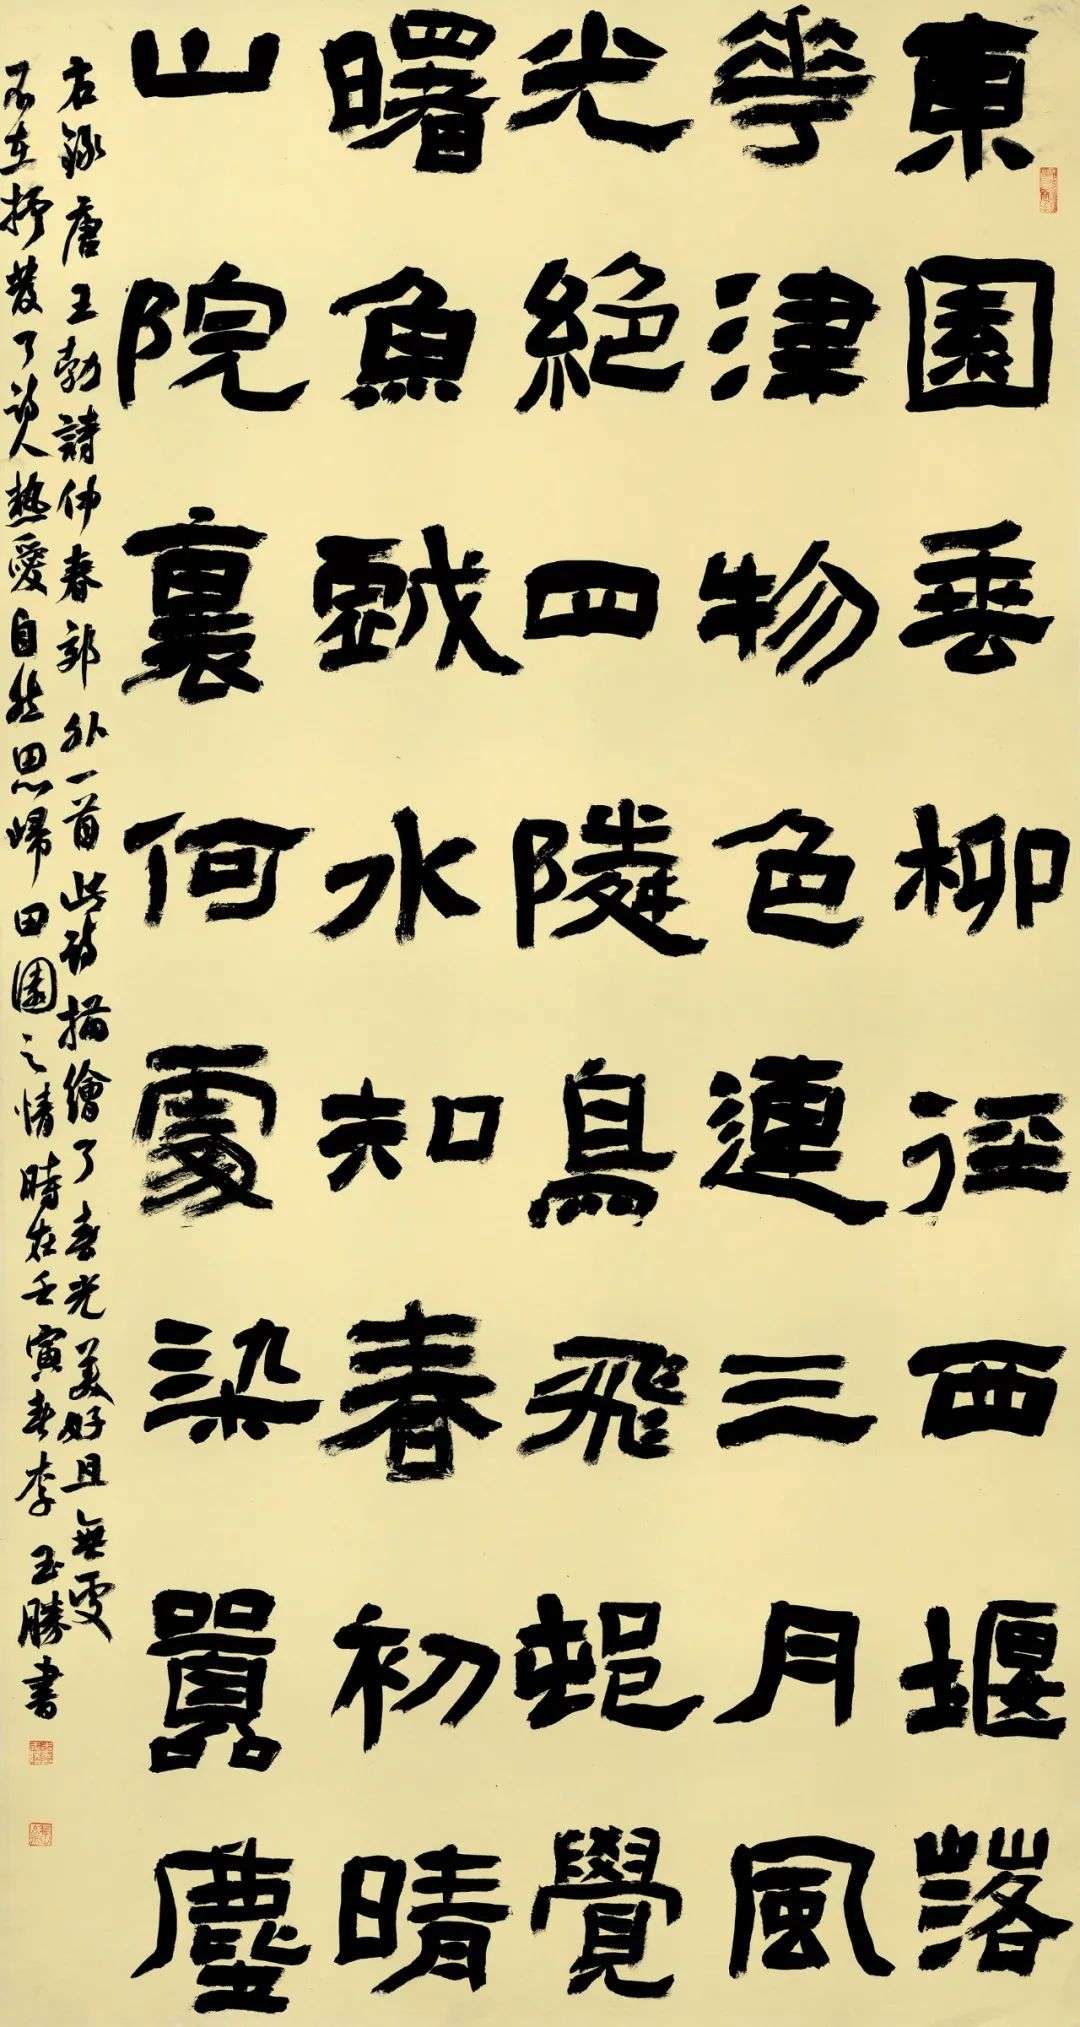 東園垂柳徑西堰落
華津物色連三月風
光絕四隣鳥飛邨覺
曙魚戲水知春初晴
山院裏何處染囂塵
右錄唐王勃詩仲春郊外一首此詩描繪了春光美好且無處
不在抒發了詩人熱愛自然思歸田園之情時在壬寅春李玉勝書